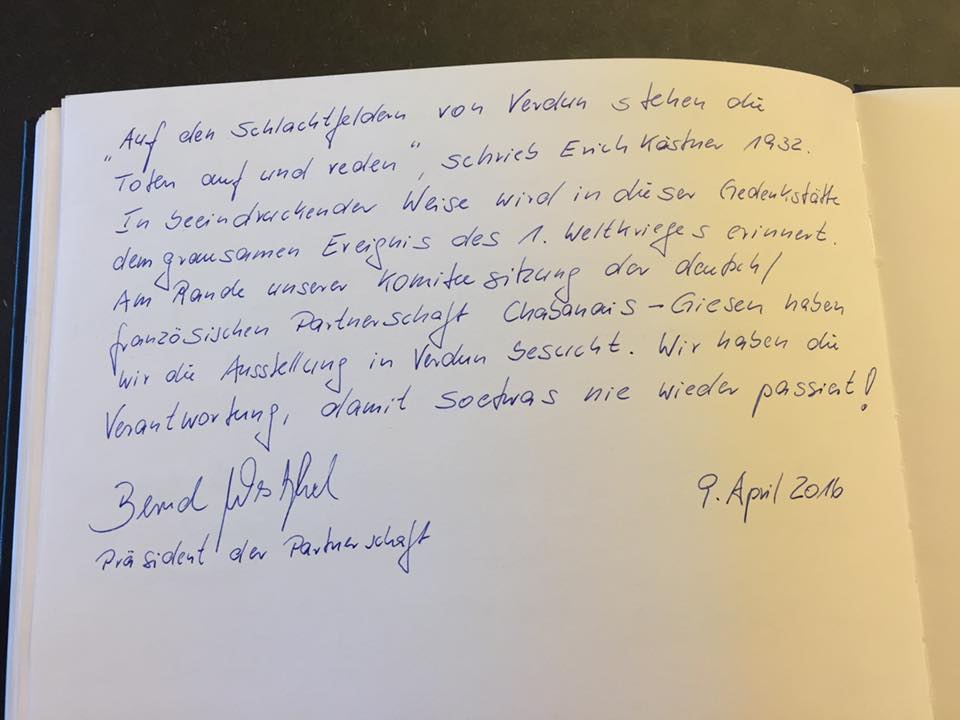 „Auf den Schlachtfeldern von Verdun stehen die
Toten auf und reden“, schrieb Erich Kästner 1932.
In beeindruckender Weise wird in dieser Gedenkstätte
dem grausamen Ereignis des 1. Weltkrieges erinnert.
Am Rande unserer Komiteesitzung der deutsch/
französischen Partnerschaft Chabanais – Giesen haben
wir die Ausstellung in Verdun besucht. Wir haben die
Verantwortung, damit soetwas nie wieder passiert!
Bernd Westphal
9. April 2016
Präsident der Partnerschaft